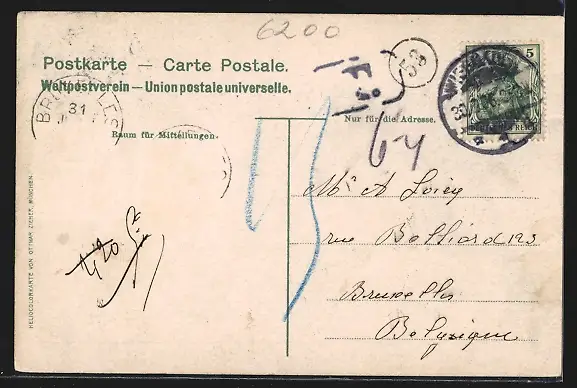 6200
Postkarte — Carte Postale.
Weltpostverein — Union postale universelle.
5
DEUTSCHES REICH
BRUXELLES
31
53
Nur für die Adresse.
Raum für Mitteilungen.
64
Mr A
rue Belliard 123
Bruxelles
Belgique
420
HELIOCOLORKARTE VON OTTMAR ZIEHER, MÜNCHEN